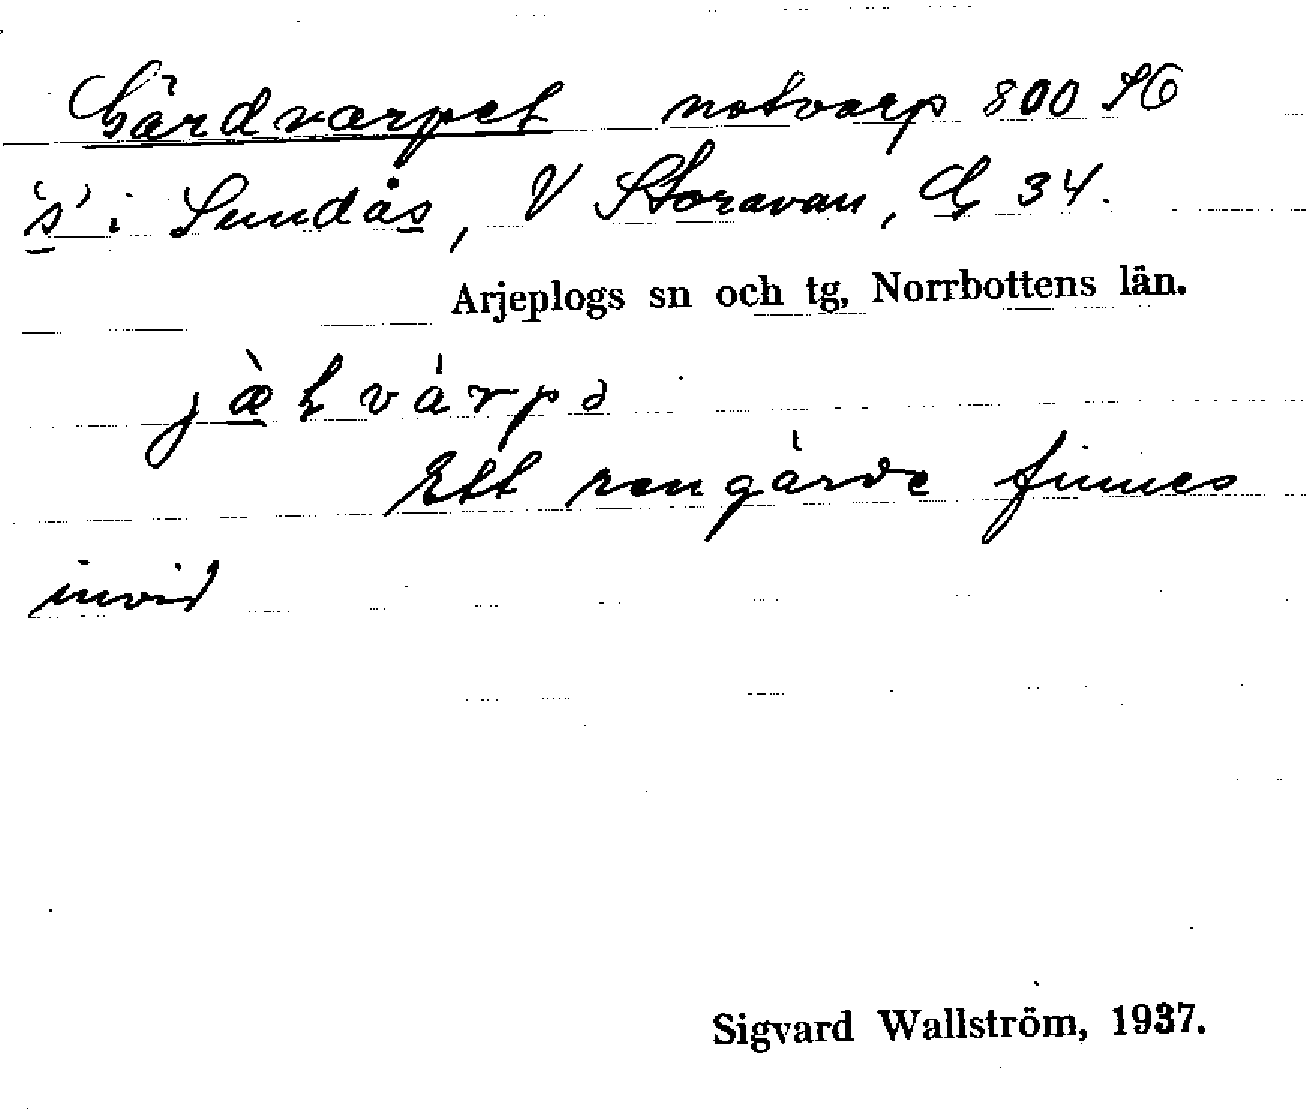 Gärdvarpet notvarp 800 SO
"s" i Sundås, V Storavan, G 34.
Arjeplogs sn och tg, Norrbottens län.
jæ̀ḷvárpə
Ett rengärde finnes
invid
Sigvard Wallström, 1937.